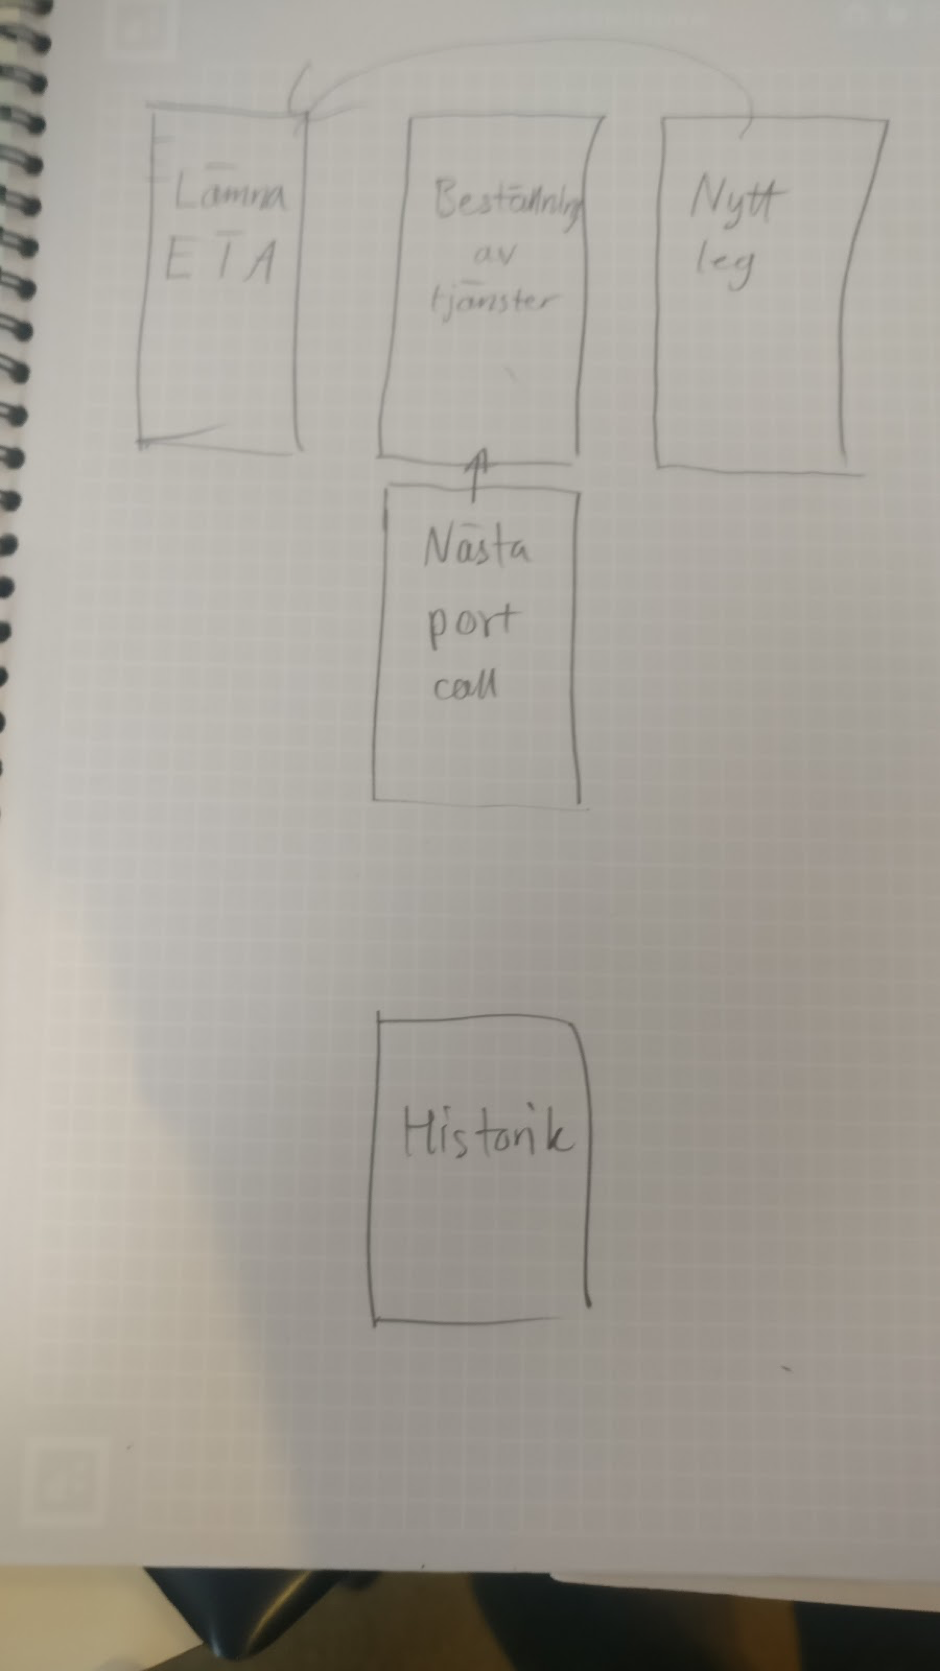 Lämna
ETA
Beställning
av
tjänster
Nytt
leg
Nästa
port
call
Historik